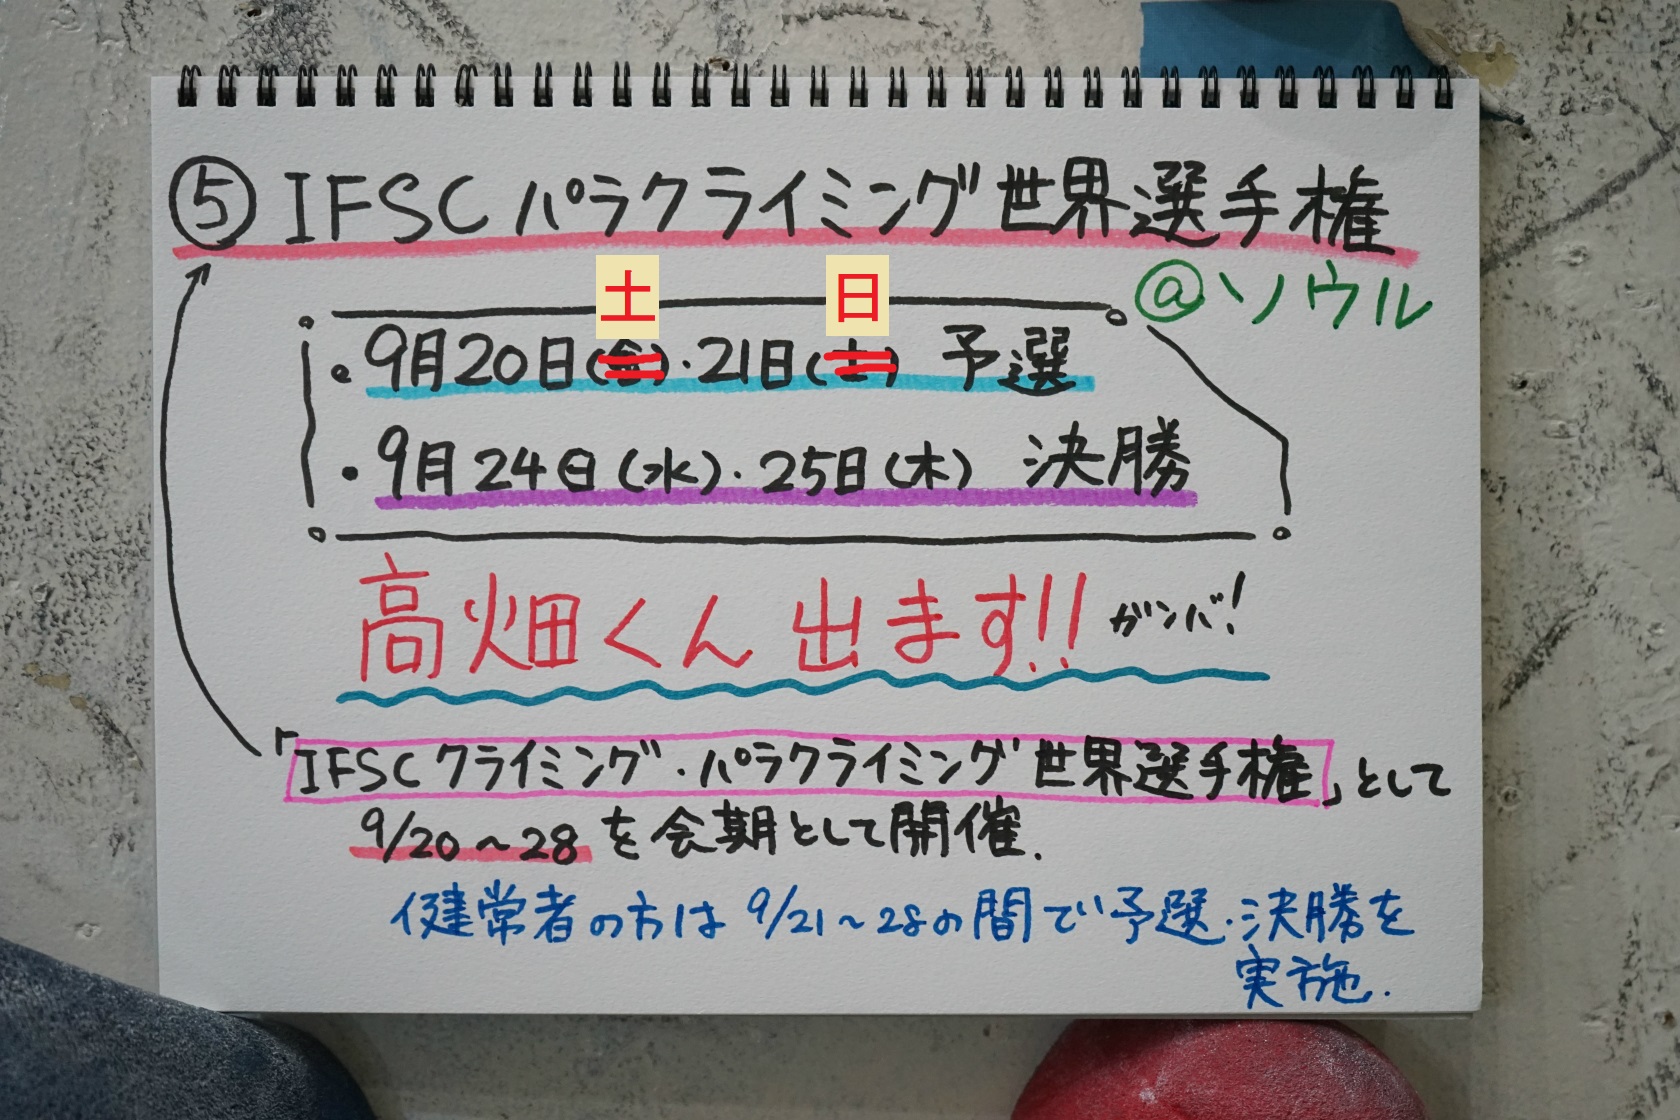 ⑤ IFSC パラクライミング世界選手権
@ソウル
土 日
・9月20日(金)・21日(土) 予選
・9月24日(水)・25日(木) 決勝
高畑くん 出ます!! ガンバ!
「IFSCクライミング・パラクライミング世界選手権」として
9/20~28 を会期として開催.
健常者の方は 9/21~28の間で予選・決勝を
実施.